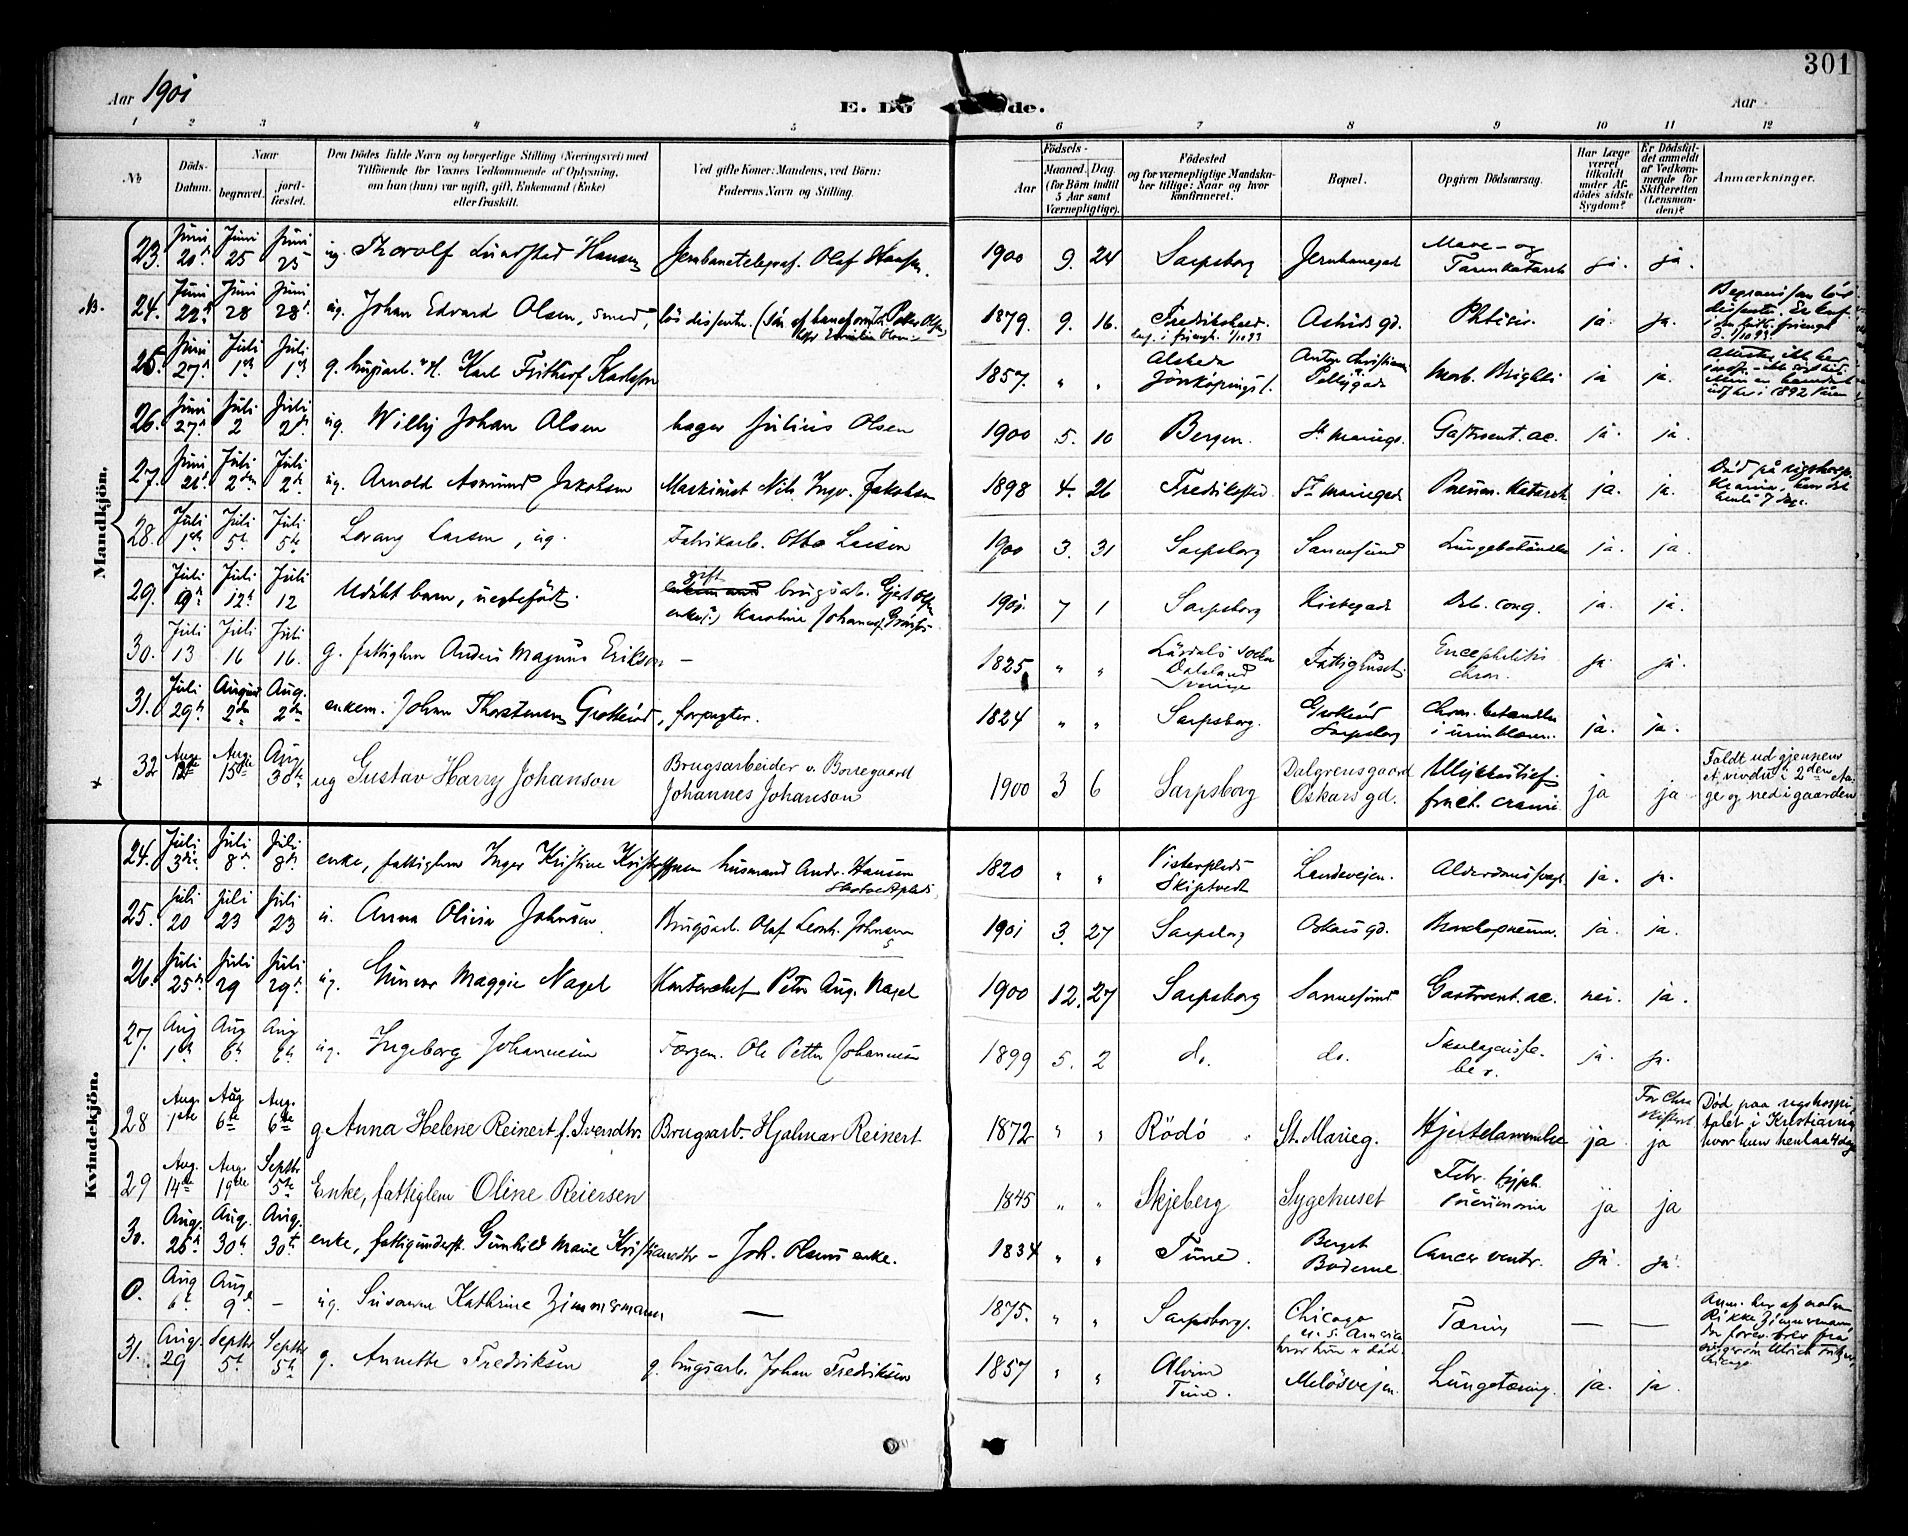 301
Aar 1901
E. Dö de.
Aar
1 2 3 4 5 6 7 8 9 10 11 12
No
Döds-Datum.
Naar
begravet.
jord-fæstet.
Den Dödes fulde Navn og borgerlige Stilling (Næringsvei) med
Tilföiende for Voxnes Vedkommende af Oplysning,
om han (hun) var ugift, gift, Enkemand (Enke)
eller fraskilt.
Ved gifte Koner: Mandens, ved Börn:
Faderens Navn og Stilling.
Födsels-
Aar
Maaned. Dag.
(for Börn indtil
5 Aar samt
Værnepligtige).
Födested
og for værnepligtige Mandska-
ber tillige: Naar og hvor
konfirmeret.
Bopæl.
Opgiven Dödsaarsag.
Har Læge
været
tilkaldt
under Af-
dödes sidste
Sygdom?
Er Dödsfal-
det anmeldt
af Vedkom-
mende for
Skifteretten
(Lensman-
den)?
Anmærkninger.
Mandkjön.
23. Juni Juni 25 Juni 25 ug. Thorolf Lundsted Hansen Jernbanetelegraf. Olaf Hansen. 1900 9. 24 Sarpsborg Jernbanegad Mave- og Tarmkatarrh ja. ja.
24. Juni Juni 28 Juni 28 ug. Johan Edvard Olsen, smed, 1879. 9. 16. Fredrikshald. Astridsgd. Phtisis. ja. ja.
25. Juni 27 Juli 1 Juli 1 g. brugsarb. Karl Frithiof Karlsson 1857. " " Jönköpings l. Morb. Brightii ja ja.
26. Juni 27 Juli 2 Juli 2 ug. Willy Johan Olsen bager Julius Olsen 1900 5. 10 Bergen. St. Mariegd. Gastroent. ac. ja. ja.
27. Juni Juli 2 Juli 2 ug. Arnold Asmund Jakobsen Maskinist Nils Ingv. Jakobsen 1898 4. 26 Fredriksted St. Mariegad Pneum. Katarrh. ja. ja. Död på rigshosp.
28. Juli 1 Juli 5 Juli 5 Lorang Larsen, ug. Fabrikarb. Otto Larsen 1900 3. 31 Sarpsborg Sannesund Lungebetændelse ja. ja.
29. Juli Juli 12 Juli 12 Udöbt barn, uegtefödt. gift brugsarb. 1901. 7 1 Sarpsborg Kirkegad Deb. cong. ja. ja.
30. Juli 13 Juli 16 Juli 16. g. fattiglem Anders Magnus Erikson — 1825 " " Dalsland Sverige Fattighuset Encephalitis chron. ja ja.
31. Juli 29 August 2 Aug. 2 enkem. Johan Thorstensen Grotteröd, forpagter. 1824 " " Sarpsborg. Grotteröd Sarpsborg Chron. betændelse i urinblæren. ja. ja.
32 Aug. 12 Aug. 15 Aug. 30te ug Gustav Harry Johanson Brugsarbeider v. Borregaard Johannes Johanson 1900 3 6 Sarpsborg Dalgrensgaard Oskarsgd. Ulykkestilf. fract. cranii ja ja Faldt ud gjennem et vindu i 2den Eta-ge og ned i gaarden
Kvindekjön.
24. Juli 3die Juli 8 Juli 8 enke, fattiglem Inger Kristine Kristoffersen husmand Andr. Hansen 1820 " " Skiptvedt Landevejen. ja. ja.
25. Juli 20 Juli 23 Juli 23 u. Anna Olivia Johnsen Brugsarb. Olaf Leonh. Johnsen 1901 3. 27 Sarpsborg Oskarsgd. Bronkopneum. ja. ja.
26. Juli 25 Juli 29 Juli 29 ug. Gunvor Maggie Nagel Kontorchef Petter Aug. Nagel 1900 12. 27 Sarpsborg Sannesund Gastroent. ac. nei. ja.
27. Aug 1 Aug 6 Aug 6 ug. Ingeborg Johannesen Ole Petter Johannesen 1899 5. 2 do. do. ja. ja.
28 Aug. 1ste Aug 6te Aug. 6te g. Anna Helene Reinert f. Svendtr. Brugsarb. Hjalmar Reinert 1872 " " Rödö St. Marieg. Hjertelammelse ja ja Död paa rigshospi-talet i Kristiania hvor hun henlaa 4 dage
29 Aug. 14te Aug. 19de Septbr 5te Enke, fattiglem Oline Reiersen 1845 " " Skjeberg Sygehuset Febr. typh. Pneumonia ja ja
30. Aug. Aug. 30 Aug. 30 enke, fattigunderst. Gunhild Marie Kristiansdtr – Joh. Olsens enke. 1834 " " Tune. Berget Boderne Cancer ventr. ja. ja.
0. Aug 6 Aug 9 — ug. Susanne Kathrine Zimmermann — 1875. " " Sarpsborg. Chicago Tæring — — Rikke Zimmermann,
31. Aug. 29 Septbr 5 Septbr 5 g. Annette Fredriksen g. brugsarb. Johan Fredriksen 1857 " " Alvim Tune. Melösvejen. Lungetæring. ja. ja